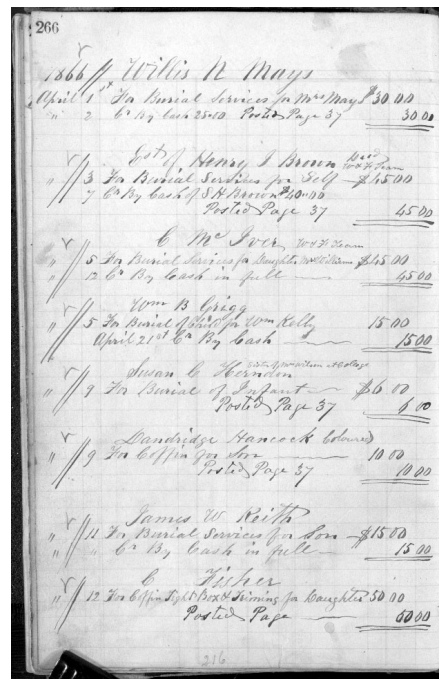 266
1866 Willis N Mays
April 1st For Burial Services for Mrs Mays $30 00
" 2 Cr By Cash 25.50 Posted Page 37 30 00
Est of Henry I Brown
" 3 For Burial Services for Self $45 00
7 Cr By Cash of S H Brown $40.00
Posted Page 37 45 00
C McIver W & F Team
" 5 For Burial Services for Daughter $45 00
" 12 Cr By Cash in full 45 00
Wm B Grigg
" 5 For Burial of Child for Wm Kelly 15 00
April 21st Cr By Cash 15 00
Susan C Herndon
" 9 For Burial of Infant $6 00
Posted Page 37 6 00
Dandridge Hancock Coloured
" 9 For Coffin for Son 10 00
Posted Page 37 10 00
James W Keith
" 11 For Burial Services for Son $15 00
" " Cr By Cash in full 15 00
C Fisher
" 12 For Coffin Tight Box & Triming for Daughter 50 00
Posted Page 50 00
216